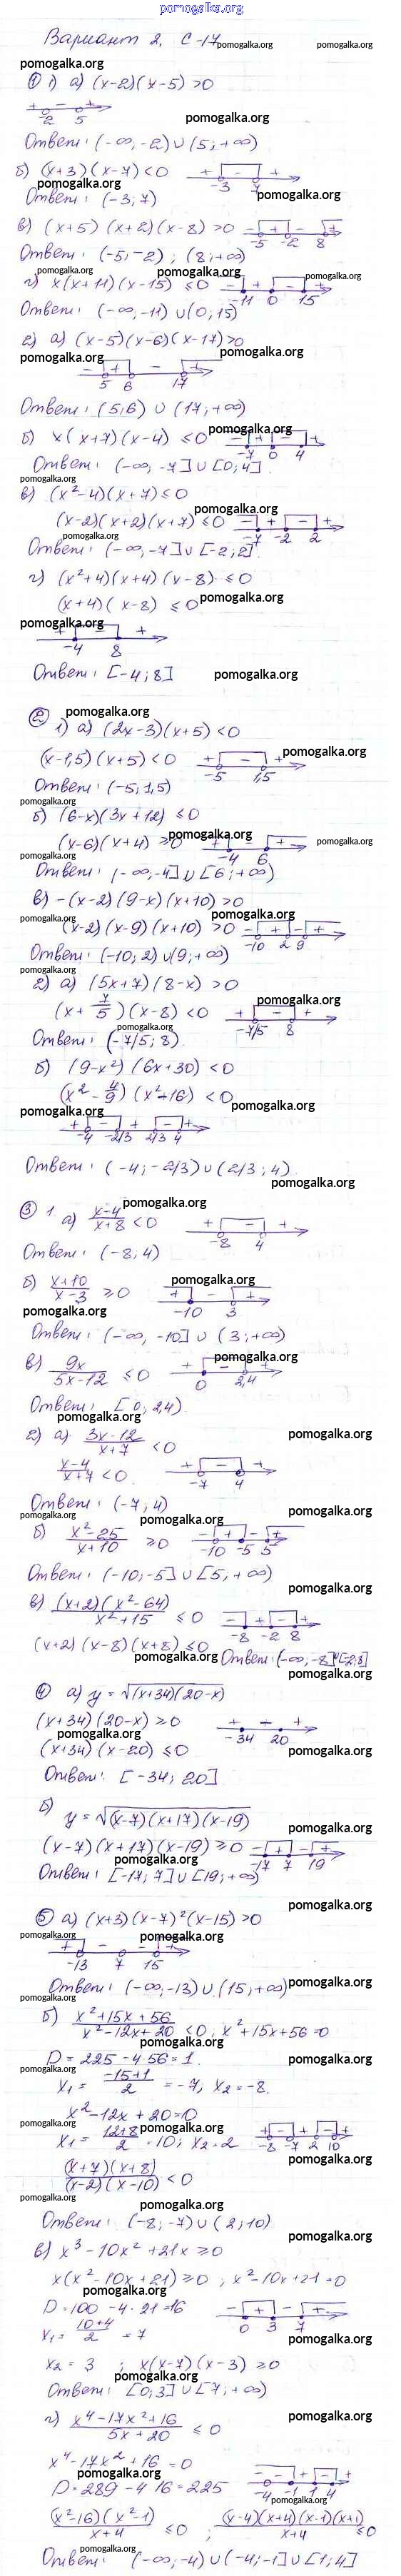 pomogalka.org
Вариант 2. С-17
pomogalka.org pomogalka.org
pomogalka.org
① 1) а) (x-2)(x-5) >0
+ - +
2 5
pomogalka.org
Ответ: (-∞, -2) ∪ (5, +∞)
б) (x+3)(x-7) <0 + - +
-3 7
pomogalka.org
Ответ: (-3; 7) pomogalka.org
в) (x+5)(x+2)(x-8) >0 - + - +
-5 -2 8
Ответ: (-5, -2) ; (8; +∞)
pomogalka.org pomogalka.org pomogalka.org
г) x(x+11)(x-15) ≤0 - + - +
-11 0 15
Ответ: (-∞, -11) ∪ (0, 15)
2) а) (x-5)(x-6)(x-17) >0
pomogalka.org pomogalka.org
- + - +
5 6 17
Ответ: (5; 6) ∪ (17; +∞)
pomogalka.org
б) x(x+7)(x-4) ≤0 - + - +
-7 0 4
Ответ: (-∞, -7] ∪ [0; 4]
pomogalka.org
в) (x²-4)(x+7) ≤0
pomogalka.org
(x-2)(x+2)(x+7) ≤0 - + - +
-7 -2 2
pomogalka.org
Ответ: (-∞, -7] ∪ [-2; 2]
г) (x²+4)(x+4)(x-8) ≤0
(x+4)(x-8) ≤0 pomogalka.org
pomogalka.org
+ - +
-4 8
Ответ: [-4; 8] pomogalka.org
pomogalka.org
② 1) а) (2x-3)(x+5) <0
pomogalka.org
(x-1,5)(x+5) <0 + - +
-5 1,5
Ответ: (-5; 1,5)
pomogalka.org
б) (6-x)(3x+12) ≤0
pomogalka.org pomogalka.org
(x-6)(x+4) ≥0 + - +
-4 6
pomogalka.org
Ответ: (-∞, -4] ∪ [6; +∞)
в) -(x-2)(9-x)(x+10) >0
pomogalka.org pomogalka.org
(x-2)(x-9)(x+10) >0 - + - +
-10 2 9
Ответ: (-10; 2) ∪ (9; +∞)
pomogalka.org
2) а) (5x+7)(8-x) >0
pomogalka.org
(x + 7/5)(x-8) <0 + - +
-7/5 8
pomogalka.org
Ответ: (-7/5; 8)
б) (9-x²)(6x+30) <0
(x² - 4/9)(x²-16) <0 pomogalka.org
pomogalka.org
+ - + - +
-4 -2/3 2/3 4
Ответ: (-4; -2/3) ∪ (2/3; 4)
pomogalka.org
pomogalka.org
③ 1 а) (x-4)/(x+8) <0 + - +
-8 4
Ответ: (-8; 4)
pomogalka.org
б) (x+10)/(x-3) ≥0 + - +
-10 3
pomogalka.org
Ответ: (-∞, -10] ∪ (3; +∞)
pomogalka.org
в) 9x/(5x-12) ≤0 + - +
0 2,4
Ответ: [0; 2,4)
pomogalka.org
2) а) (3x-12)/(x+7) <0 pomogalka.org
(x-4)/(x+7) <0 + - +
-7 4
Ответ: (-7; 4)
pomogalka.org pomogalka.org
б) (x²-25)/(x+10) ≥0 - + - +
-10 -5 5
Ответ: (-10; -5] ∪ [5; +∞)
pomogalka.org
в) (x+2)(x²-64)/(x²+15) ≤0 - + - +
-8 -2 8
(x+2)(x-8)(x+8) ≤0
pomogalka.org Ответ: (-∞; -8] ∪ [-2; 8]
pomogalka.org
④ а) y = √(x+34)(20-x)
(x+34)(20-x) ≥0 + - +
-34 20
pomogalka.org pomogalka.org
(x+34)(x-20) ≤0
Ответ: [-34; 20]
б) y = √(x-7)(x+17)(x-19)
(x-7)(x+17)(x-19) ≥0 - + - +
-17 7 19
pomogalka.org
Ответ: [-17; 7] ∪ [19; +∞)
pomogalka.org
⑤ а) (x+3)(x-7)²(x-15) >0
pomogalka.org pomogalka.org
+ - - +
-13 7 15
Ответ: (-∞, -13) ∪ (15; +∞) pomogalka.org
pomogalka.org
б) (x²+15x+56)/(x²-12x+20) <0; x²+15x+56=0
pomogalka.org
D = 225 - 4·56 = 1 pomogalka.org
x₁ = (-15+1)/2 = -7; x₂ = -8.
x² - 12x + 20 = 0
pomogalka.org pomogalka.org
x₁ = (12+8)/2 = 10; x₂ = 2 + - + - +
-8 -7 2 10
(x+7)(x+8)/(x-2)(x-10) <0 pomogalka.org
pomogalka.org pomogalka.org
Ответ: (-8; -7) ∪ (2; 10)
pomogalka.org
в) x³ - 10x² + 21x ≥0
x(x²-10x+21) ≥0; x²-10x+21=0
pomogalka.org
D = 100 - 4·21 = 16 - + - +
0 3 7
x₁ = (10+4)/2 = 7 pomogalka.org
x₂ = 3 ; x(x-7)(x-3) ≥0
Ответ: [0; 3] ∪ [7; +∞)
г) (x⁴-17x²+16)/(5x+20) ≤0 pomogalka.org
x⁴ - 17x² + 16 = 0
pomogalka.org - - + - +
-4 -1 1 4
D = 289 - 4·16 = 225
pomogalka.org
(x²-16)(x²-1)/(x+4) ≤0 ; (x-4)(x+4)(x-1)(x+1)/(x+4) ≤0
pomogalka.org
Ответ: (-∞; -4) ∪ (-4; -1] ∪ [1; 4]